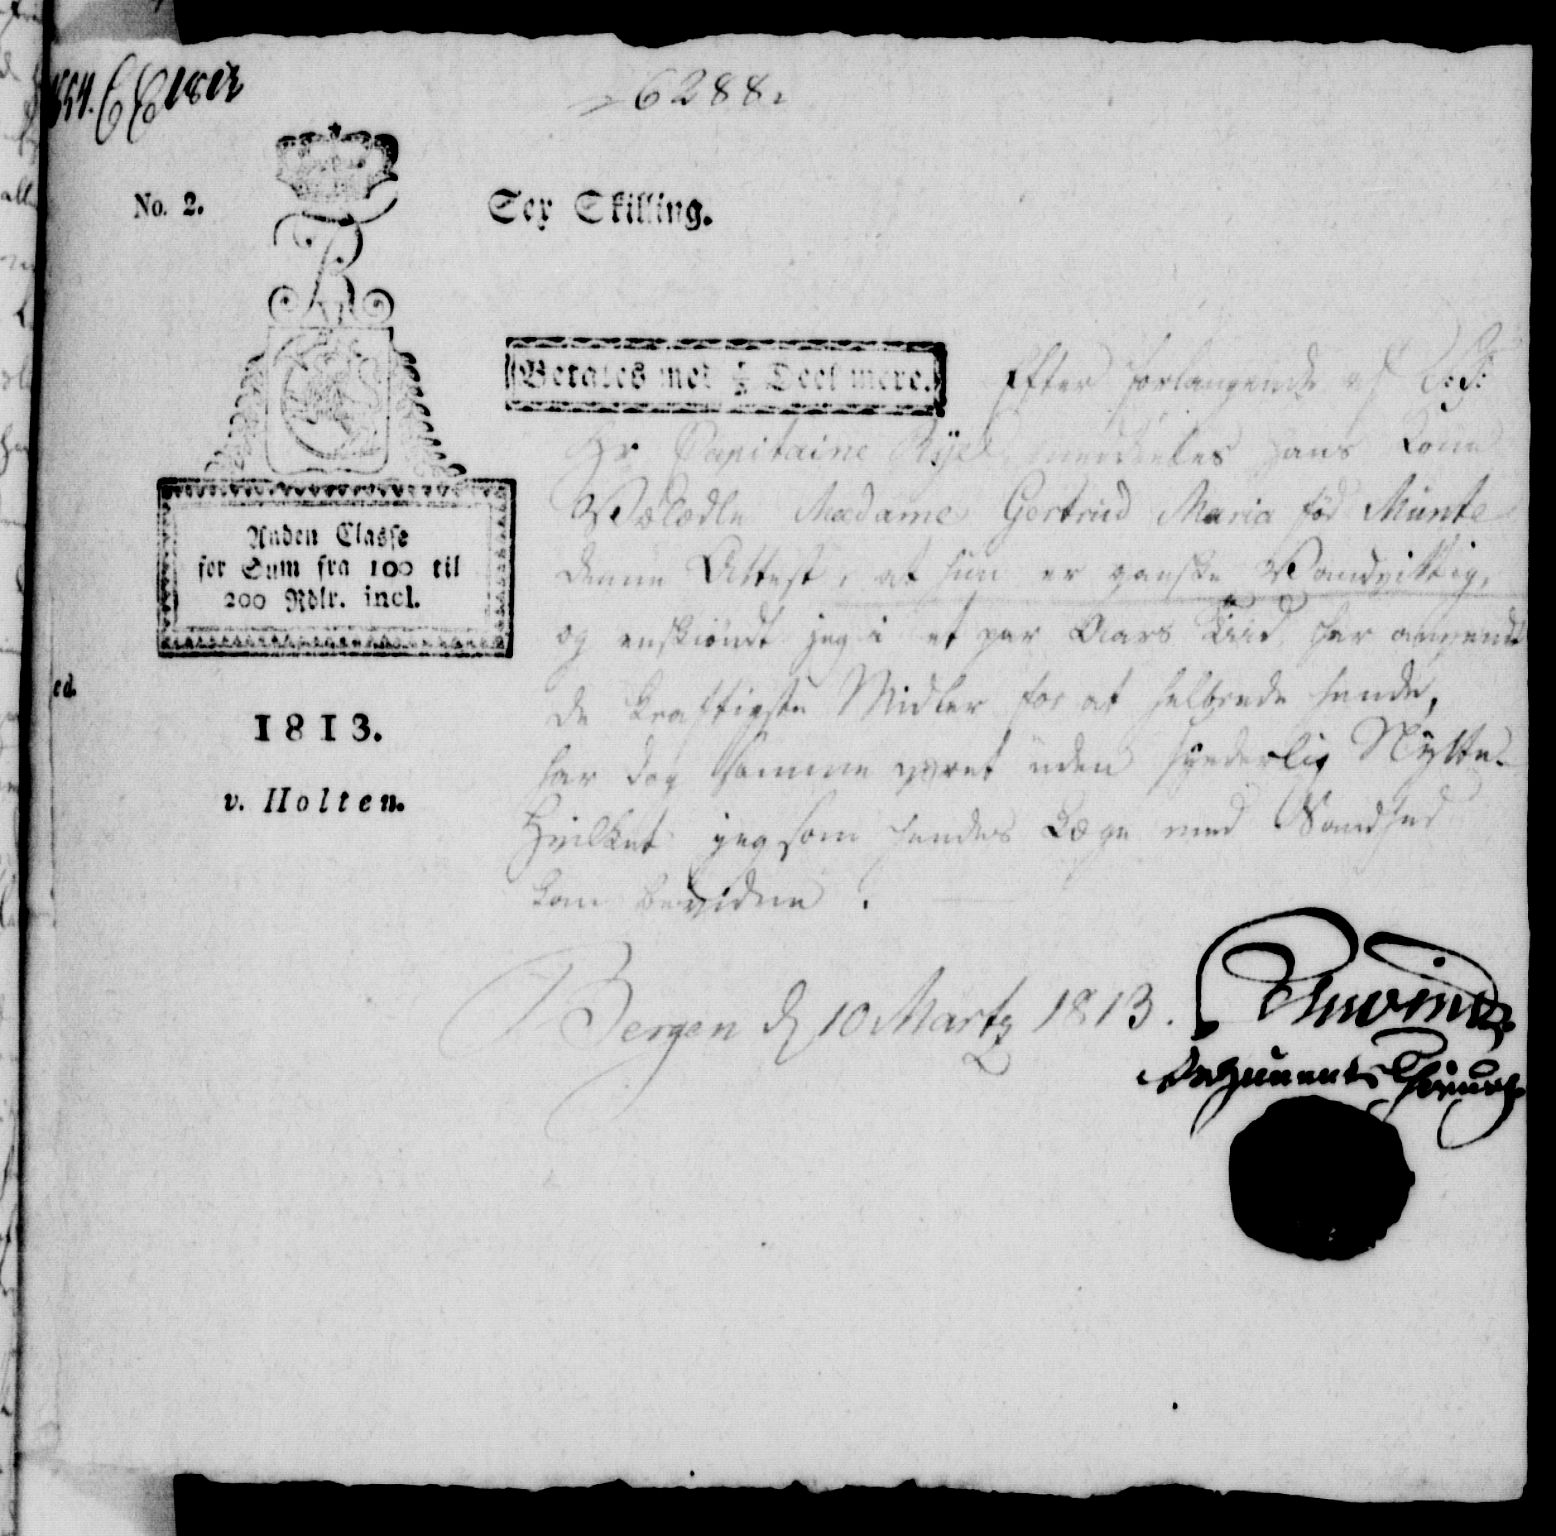 1813
6288.
No. 2.
Sex Skilling.
Betales med ½ Deel mere.
Efter Forlangende af
Hr Capitaine Rÿe meddeeles hans Kone
Velædle Madame Gertrud Maria fød Münte
denne Attest, at hun er ganske Vandvittig,
og enskiöndt jeg i et par Aars Tiid har anvendt
de kraftigste Midler for at helbrede hende,
har dog samme været uden synderlig Nÿtte.
Hvilket jeg som hendes Læge med Sandhed
kan bevidne.
Anden Classe
for Sum fra 100 til
200 Rdlr. incl.
ed.
1813.
v. Holten.
Bergen d 10 Martz 1813.
Regiments